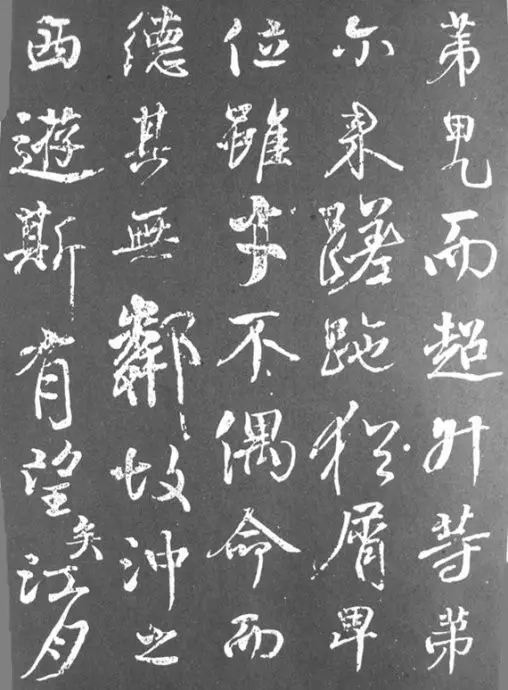 第甲乙而超升等第
尔来蹉跎猶屑卑
位雖才不偶命而
德其無鄰故沖之
西遊斯有望矣江月